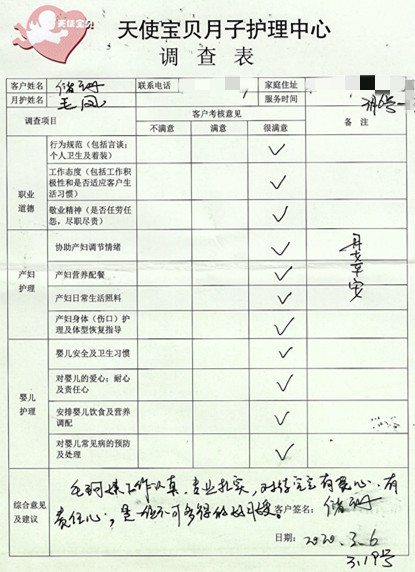 天使宝贝
天使宝贝月子护理中心
调查表
客户姓名 储 联系电话 家庭住址
月护姓名 毛 服务时间
调查项目 客户考核意见 备注
不满意 满意 很满意
职业道德
行为规范（包括言谈;
个人卫生及着装） ✓
工作态度（包括工作积
极性和是否适应客户生
活习惯） ✓
敬业精神（是否任劳任
怨，尽职尽责） ✓
产妇护理
协助产妇调节情绪 ✓
产妇营养配餐 ✓
产妇日常生活照料 ✓
产妇身体（伤口）护
理及体型恢复指导 ✓
婴儿护理
婴儿安全及卫生习惯 ✓
对婴儿的爱心;耐心
及责任心 ✓
安排婴儿饮食及营养
调配 ✓
对婴儿常见病的预防
及处理 ✓
综合意见
及建议
毛阿姨工作认真，专业扎实，对待宝宝有爱心，有
责任心，是一位不可多得的好月嫂。
客户签名： 储
日期： 2020.3.6
3.19号